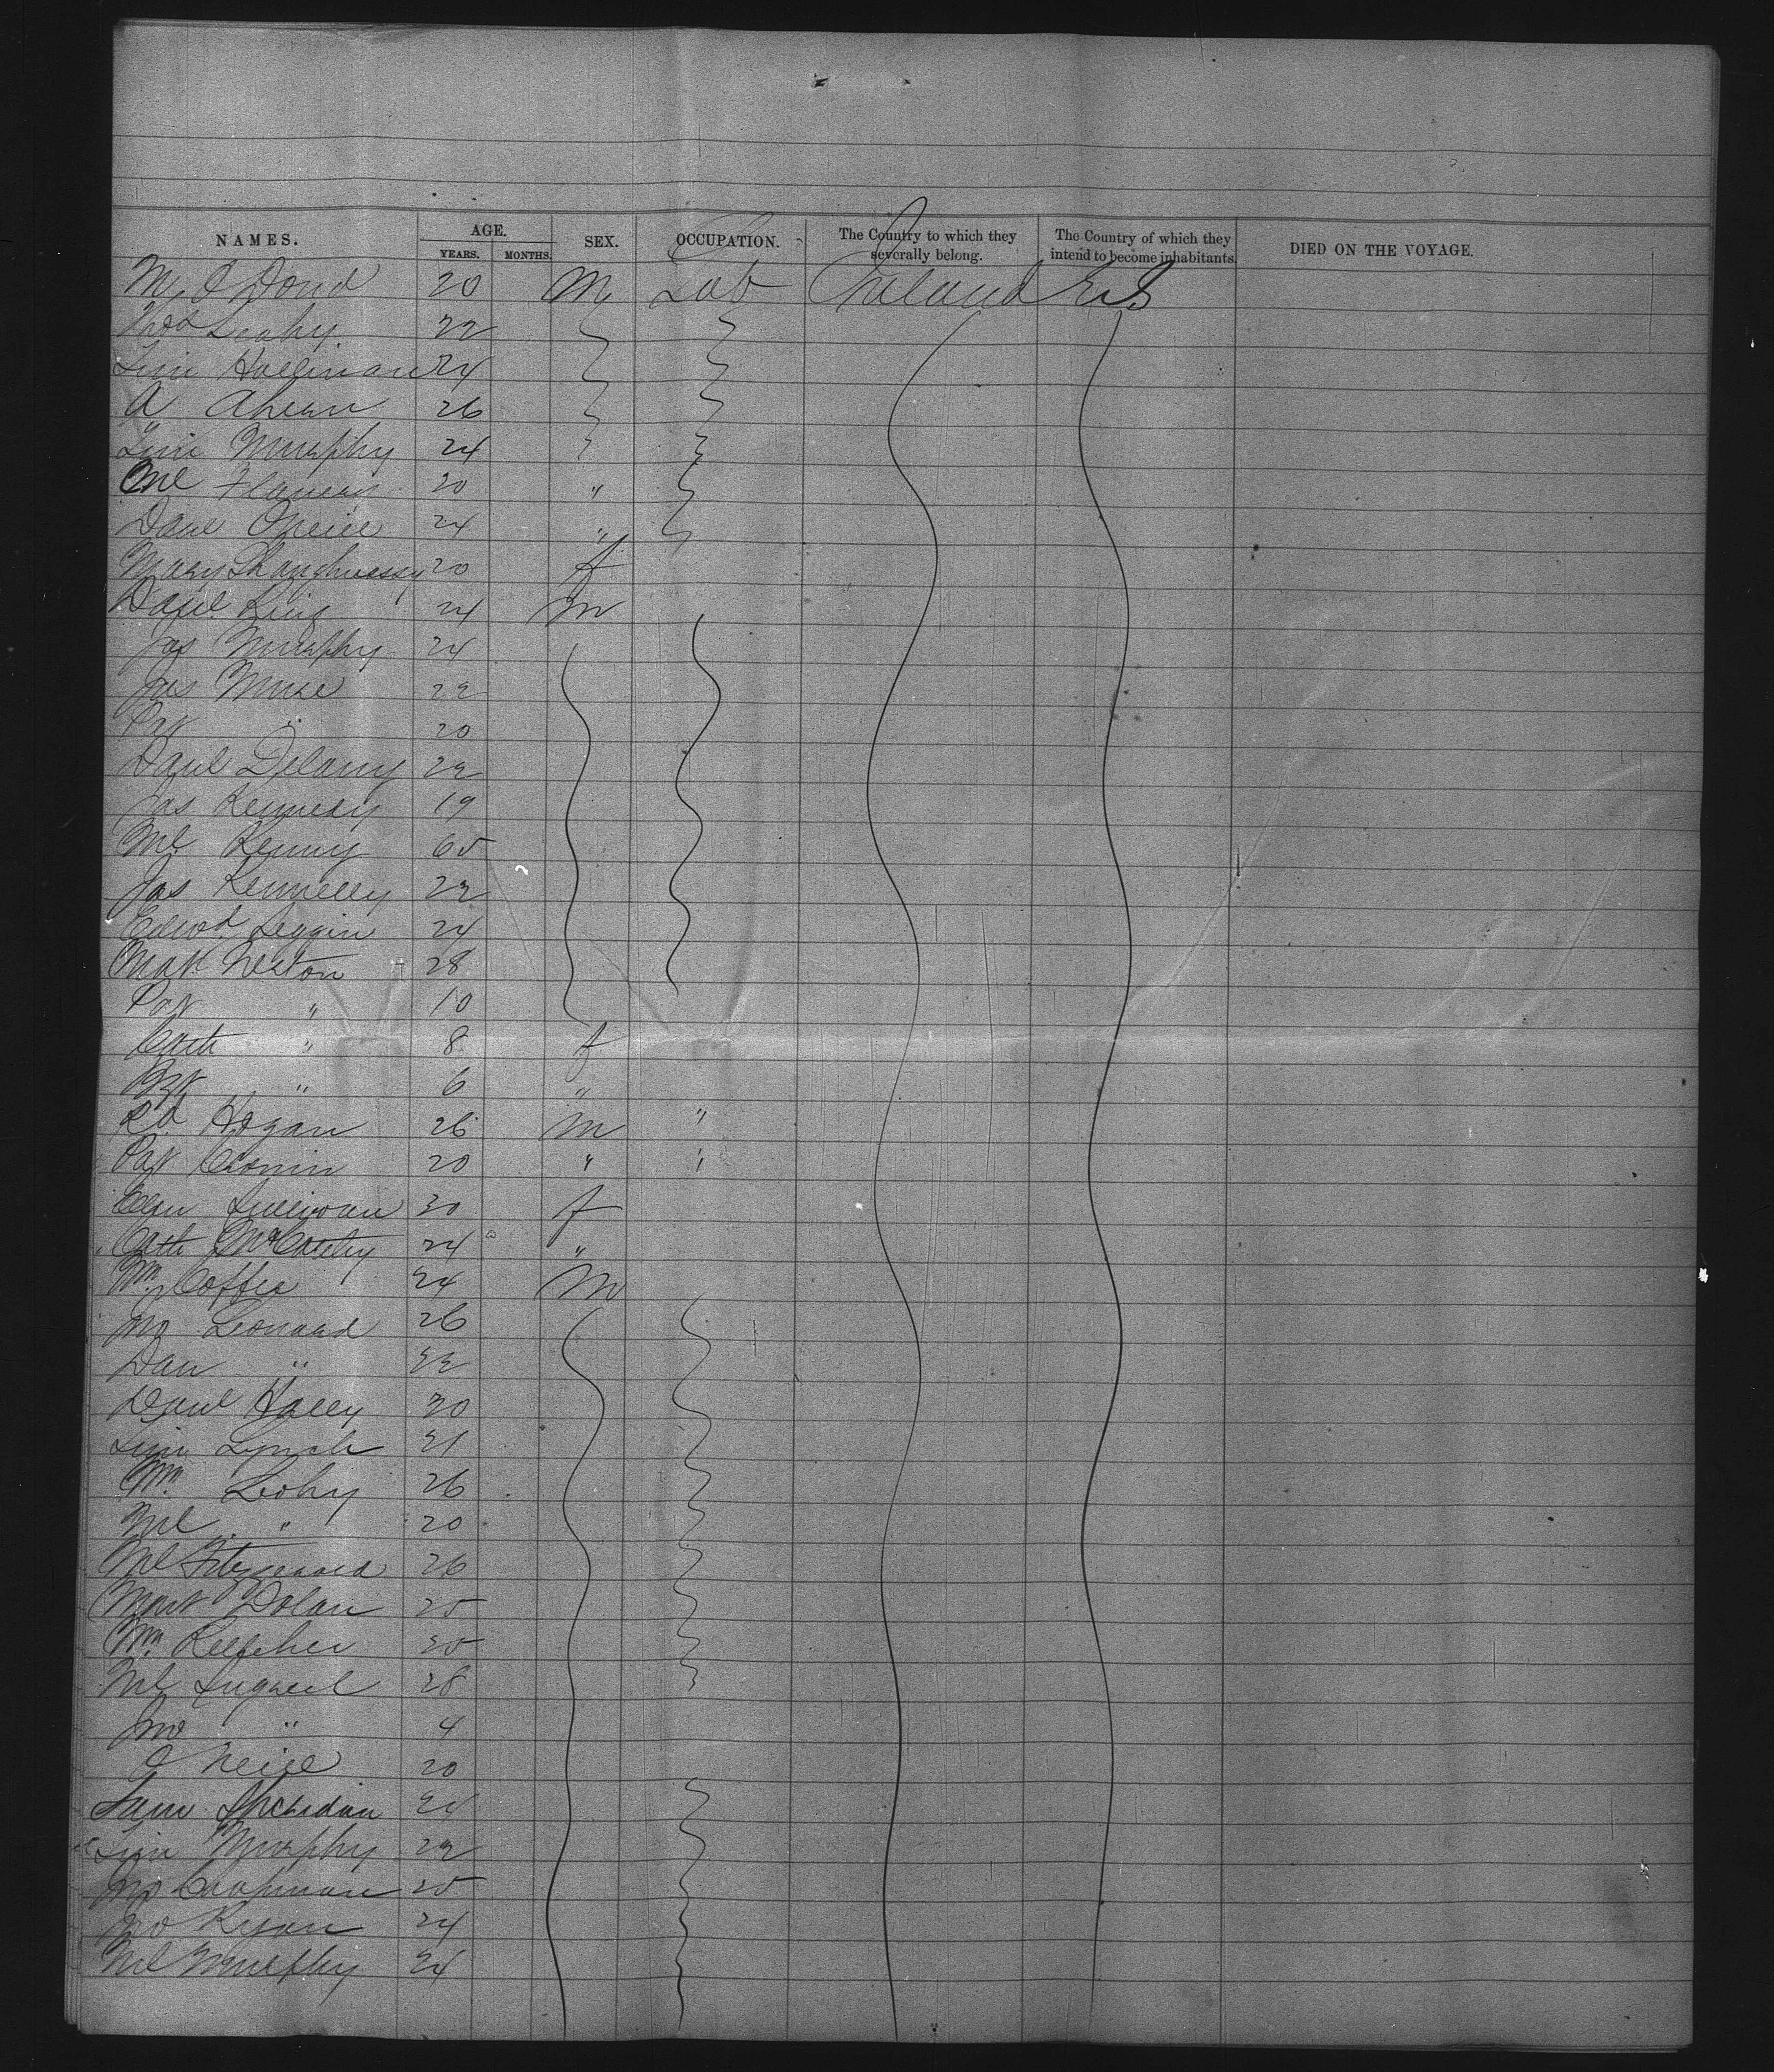 NAMES. AGE. YEARS. MONTHS. SEX. OCCUPATION. The Country to which they severally belong. The Country of which they intend to become inhabitants. DIED ON THE VOYAGE.
M. O Dond 20 M Lab Ireland U.S
Thos Leahy 22
Tim Hallinan 24
A Ahearn 26
Tim Murphy 24
Ml 20 "
Danl ONeill 24 "
Mary Shaughnessy 20 f
Danl King 24 M
Jas Murphy 24
Jas 22
Pat " 20
Danl Delany 22
Jas Kennedy 19
Ml Kenny 60
Jas Kennelly 22
Edwd 24
Mat 28
Pat " 10
Cath " 8 f
" 6 "
Rd Hogan 26 M "
Pat Cronin 20 " "
Ellen Sullivan 30 f
Cath McCarthy 24 "
Wm Coffee 24 M
Jno Leonard 26
Dan " 22
Danl Haley 30
Tim Lynch 21
Wm Leahy 26
Ml " 20
Ml Fitzgerald 26
Mart Dolan 25
Wm Kelleher 25
Ml 28
Jno " 4
O Neill 20
Sam Sheridan 24
Tim Murphy 22
Jno Chapman 25
Jno Ryan 24
Ml Murphy 24